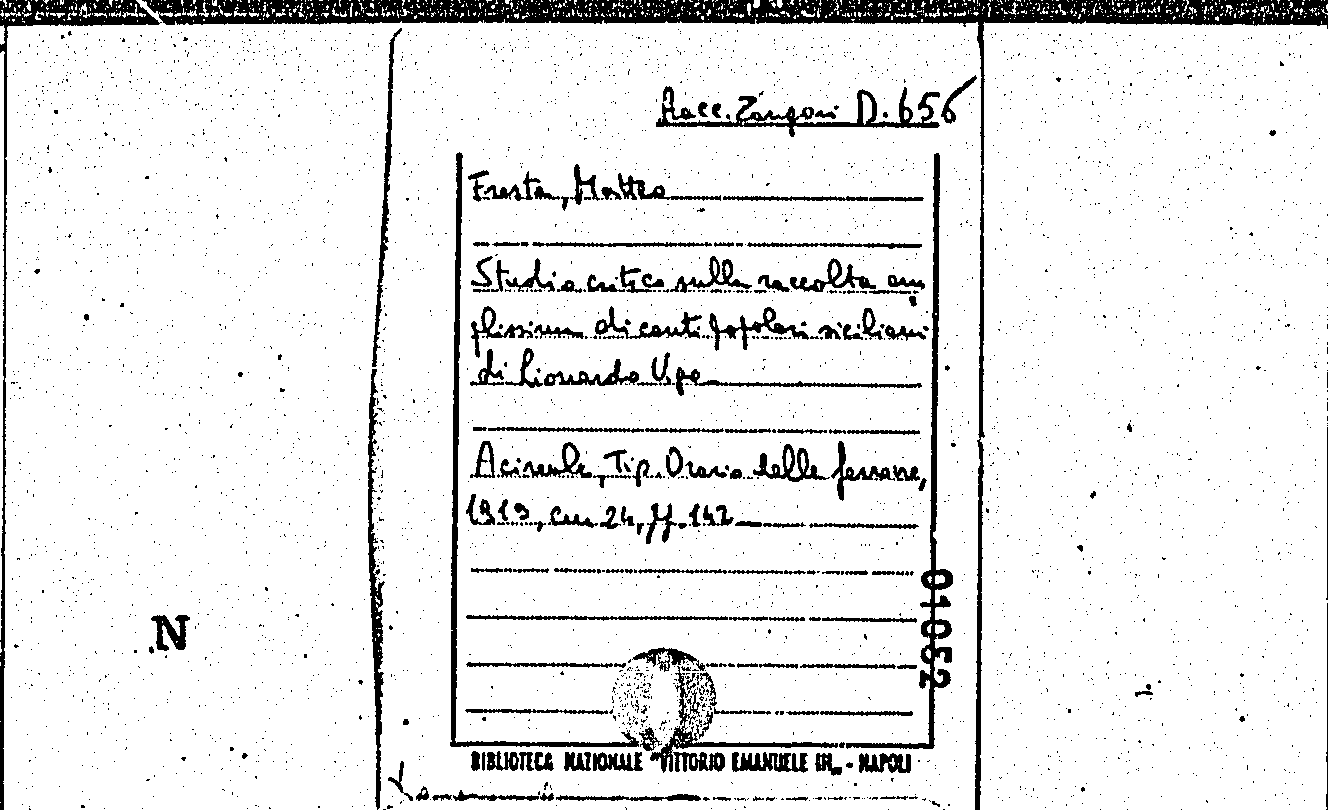 Racc. Zangari D. 656
Fresta, Matteo
Studio critico sulla raccolta am
plissima di canti popolari siciliani
di Lionardo Vigo
Acireale, Tip. Orario delle ferrovie,
1919, cm 24, pp. 142
01052
N
BIBLIOTECA NAZIONALE "VITTORIO EMANUELE III„ - NAPOLI